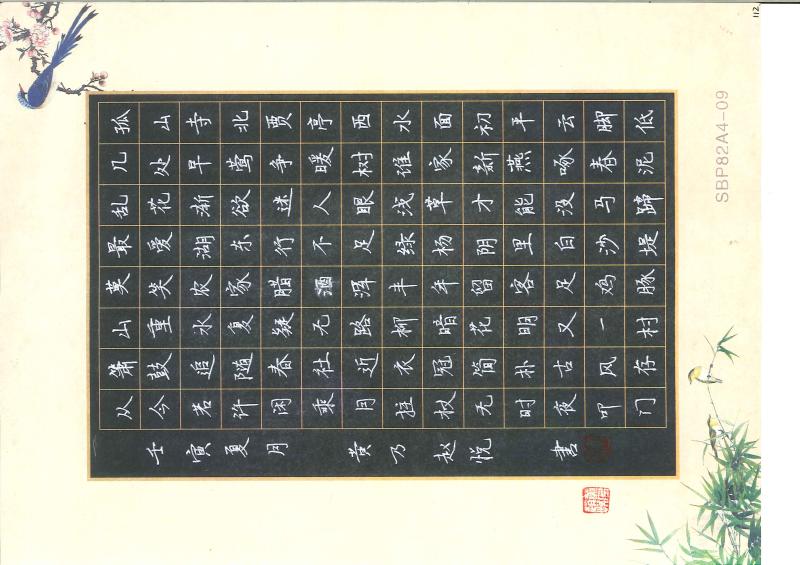 孤山寺北贾亭西水面初平云脚低
几处早莺争暖树谁家新燕啄春泥
乱花渐欲迷人眼浅草才能没马蹄
最爱湖东行不足绿杨阴里白沙堤
莫笑农家腊酒浑丰年留客足鸡豚
山重水复疑无路柳暗花明又一村
箫鼓追随春社近衣冠简朴古风存
从今若许闲乘月拄杖无时夜叩门
壬寅夏月 黄乃赵悦 書
SBP82A4-09
112